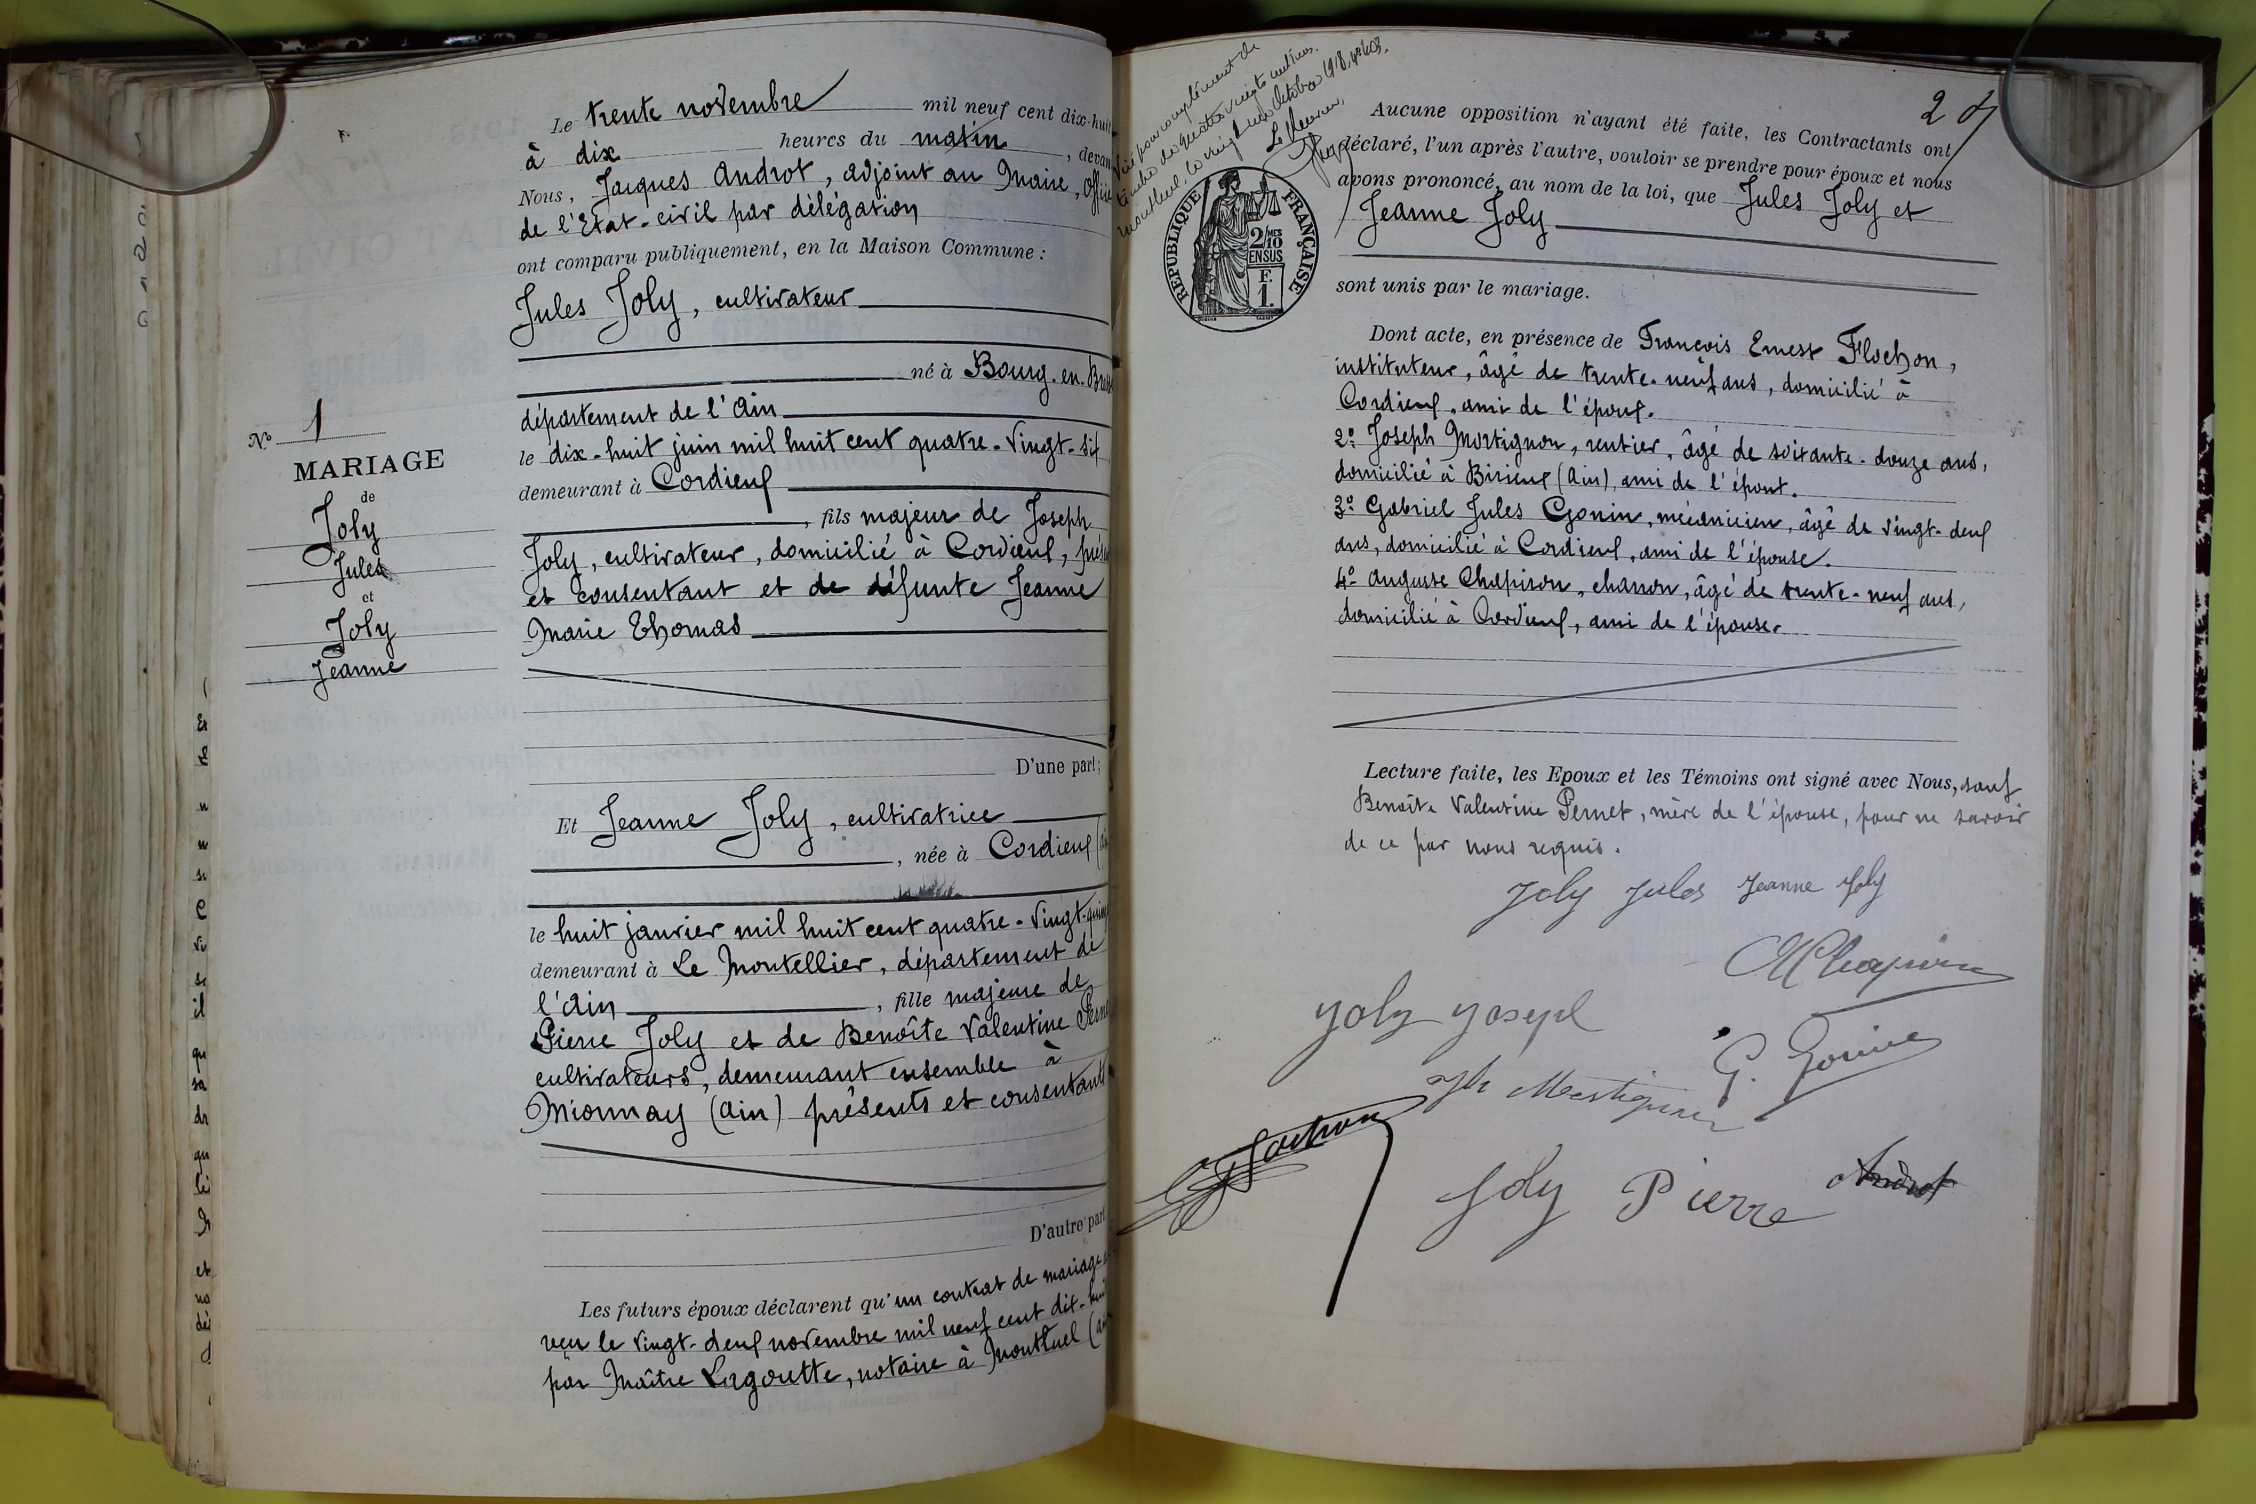 Le trente novembre mil neuf cent dix-huit
à dix heures du matin, devan
Nous, Jacques Androt, adjoint au Maire, Offici
de l'Etat-civil par délégation
ont comparu publiquement, en la Maison Commune :
Jules Joly, cultivateur
né à Bourg-en-Bress
département de l'Ain
le dix-huit juin mil huit cent quatre-vingt-six
demeurant à Cordieux
, fils majeur de Joseph
Joly, cultivateur, domicilié à Cordieux, prése
et consentant et de défunte Jeanne
Marie Thomas
D'une part;
Et Jeanne Joly, cultivatrice
, née à Cordieux (ain
le huit janvier mil huit cent quatre-vingt-quinz
demeurant à Le Montellier, département de
l'Ain, fille majeure de
Pierre Joly et de Benoîte Valentine Perne
cultivateurs, demeurant ensemble à
Mionnay (Ain) présents et consentants
D'autre part
Les futurs époux déclarent qu'un contrat de mariage
reçu le vingt-deux novembre mil neuf cent dix-huit
par Maître Lagoutte, notaire à Montluel (ain
N° 1
MARIAGE
de
Joly
Jules
et
Joly
Jeanne
Visé pour complément de
timbre de quatre vingts centimes.
Montluel, le vingt un octobre 1918, N° 403.
Le Receveur,
RÉPUBLIQUE FRANÇAISE
2/10 MES
EN SUS
F.
1.
2
Aucune opposition n'ayant été faite, les Contractants ont
déclaré, l'un après l'autre, vouloir se prendre pour époux et nous
avons prononcé, au nom de la loi, que Jules Joly et
Jeanne Joly
sont unis par le mariage.
Dont acte, en présence de François Ernest Flochon,
instituteur, âgé de trente-neuf ans, domicilié à
Cordieux, ami de l'époux.
2° Joseph Mortignon, rentier, âgé de soixante-douze ans,
domicilié à Birieux (Ain), ami de l'époux.
3° Gabriel Jules Gonin, mécanicien, âgé de vingt-deux
ans, domicilié à Cordieux, ami de l'épouse.
4° Auguste Chapiron, charron, âgé de trente-neuf ans,
domicilié à Cordieux, ami de l'épouse.
Lecture faite, les Epoux et les Témoins ont signé avec Nous, sauf
Benoîte Valentine Pernet, mère de l'épouse, pour ne savoir
de ce par nous requis.
Joly Jules Jeanne Joly
A Chapiron
Joly Joseph
G. Gonin
Joly Pierre
Androt